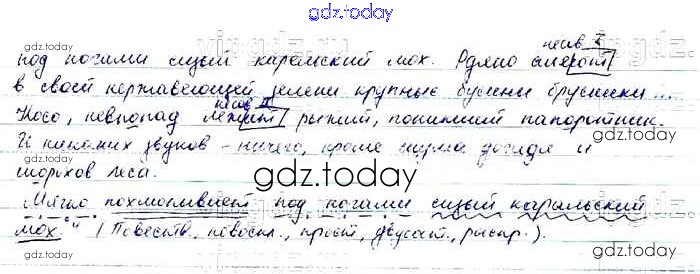 gdz.today
несов. I
под ногами сизый карельский мох. Рдяно смеют
в своей нержавеющей зелени крупные бусины брусники...
несов. II
Косо, невпопад лежит рыжий, поникший папоротник.
И никаких звуков - ничего, кроме шума дождя и
шорохов леса.
gdz.today
Мягко похмыкивает под ногами сизый карельский
мох." (Повеств., невоскл., прост., двусост., распр.).
gdz.today